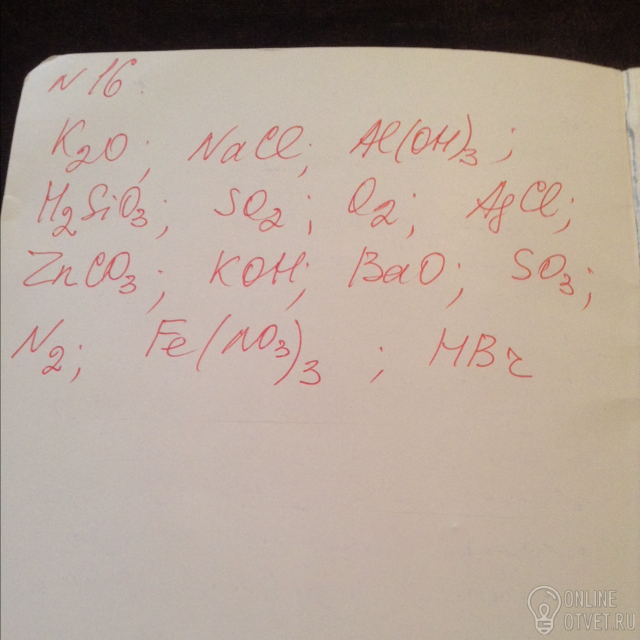 N 16.
K2O; NaCl; Al(OH)3;
H2SiO3; SO2; O2; AgCl;
ZnCO3; KOH; BaO; SO3;
N2; Fe(NO3)3; HBr
ONLINE
OTVET.RU